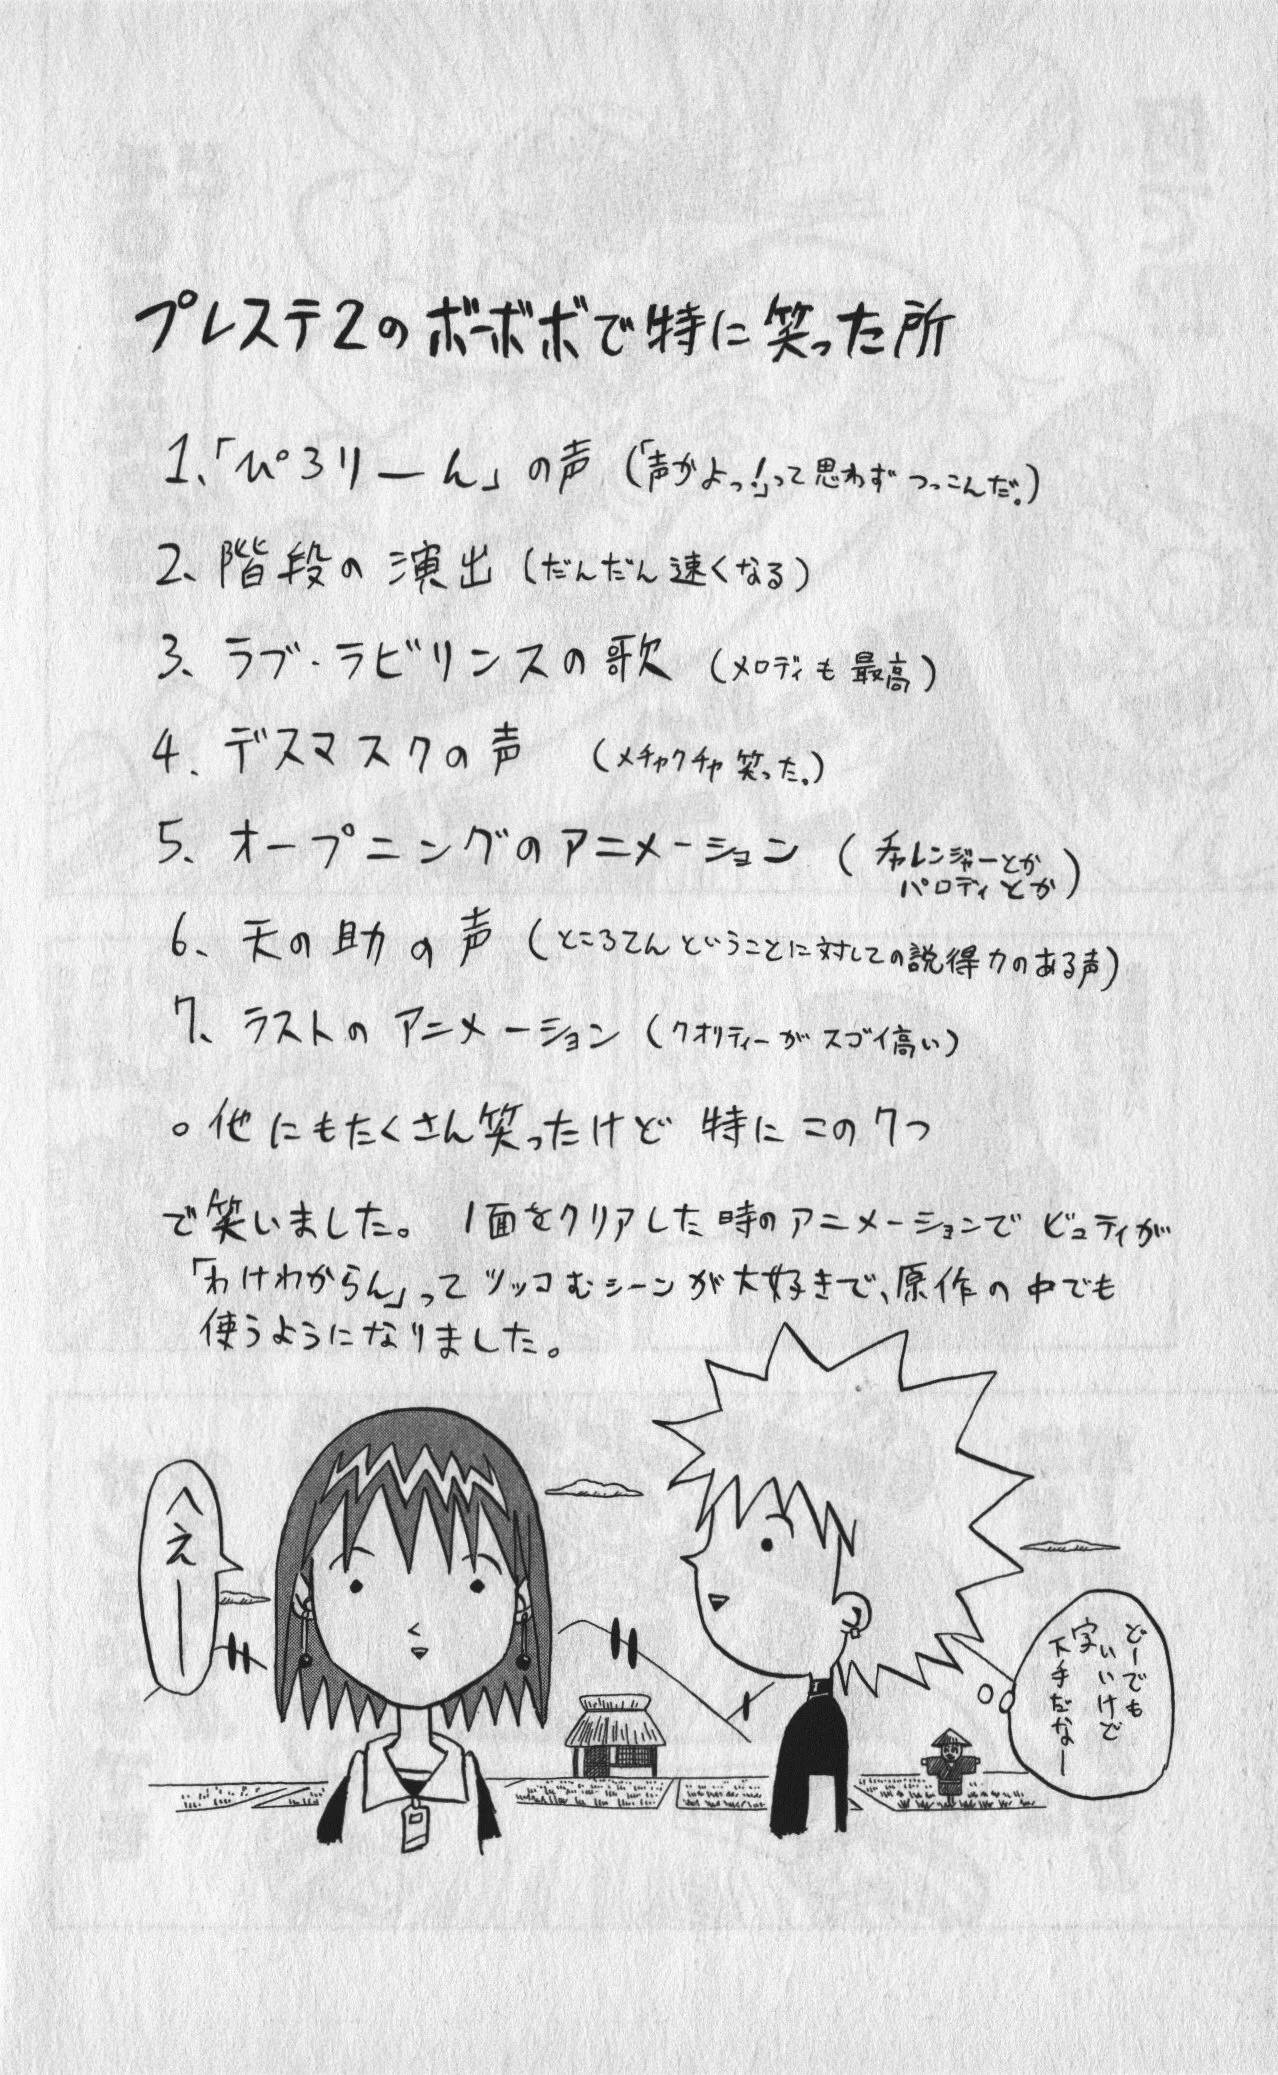 プレステ2のボーボボで特に笑った所
1、「ぴろりーん」の声（「声かよっ！」って思わずつっこんだ。）
2、階段の演出（だんだん速くなる）
3、ラブ・ラビリンスの歌（メロディも最高）
4、デスマスクの声（メチャクチャ笑った。）
5、オープニングのアニメーション（チャレンジャーとか
パロディとか）
6、天の助の声（ところてんということに対しての説得力のある声）
7、ラストのアニメーション（クオリティーがスゴイ高い）
○他にもたくさん笑ったけど特にこの7つ
で笑いました。1面をクリアした時のアニメーションでビュティが
「わけわからん」ってツッコむシーンが大好きで、原作の中でも
使うようになりました。
へえー
どーでも
いいけど
字
下手だなー